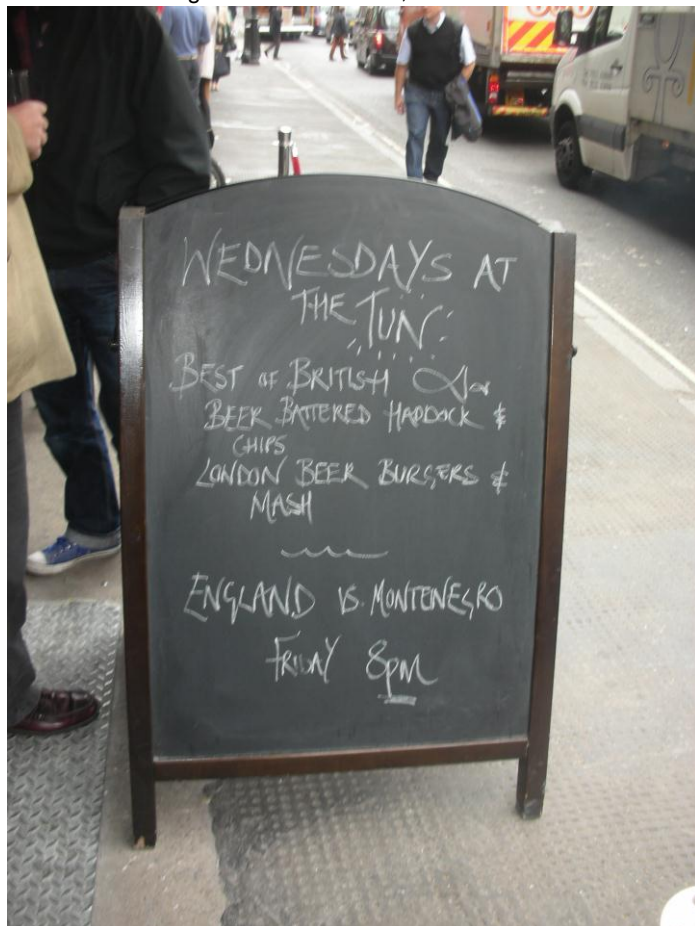 WEDNESDAYS AT
THE TUN
BEST OF BRITISH
BEER BATTERED HADDOCK &
CHIPS
LONDON BEER BURGERS &
MASH
ENGLAND VS. MONTENEGRO
FRIDAY 8PM